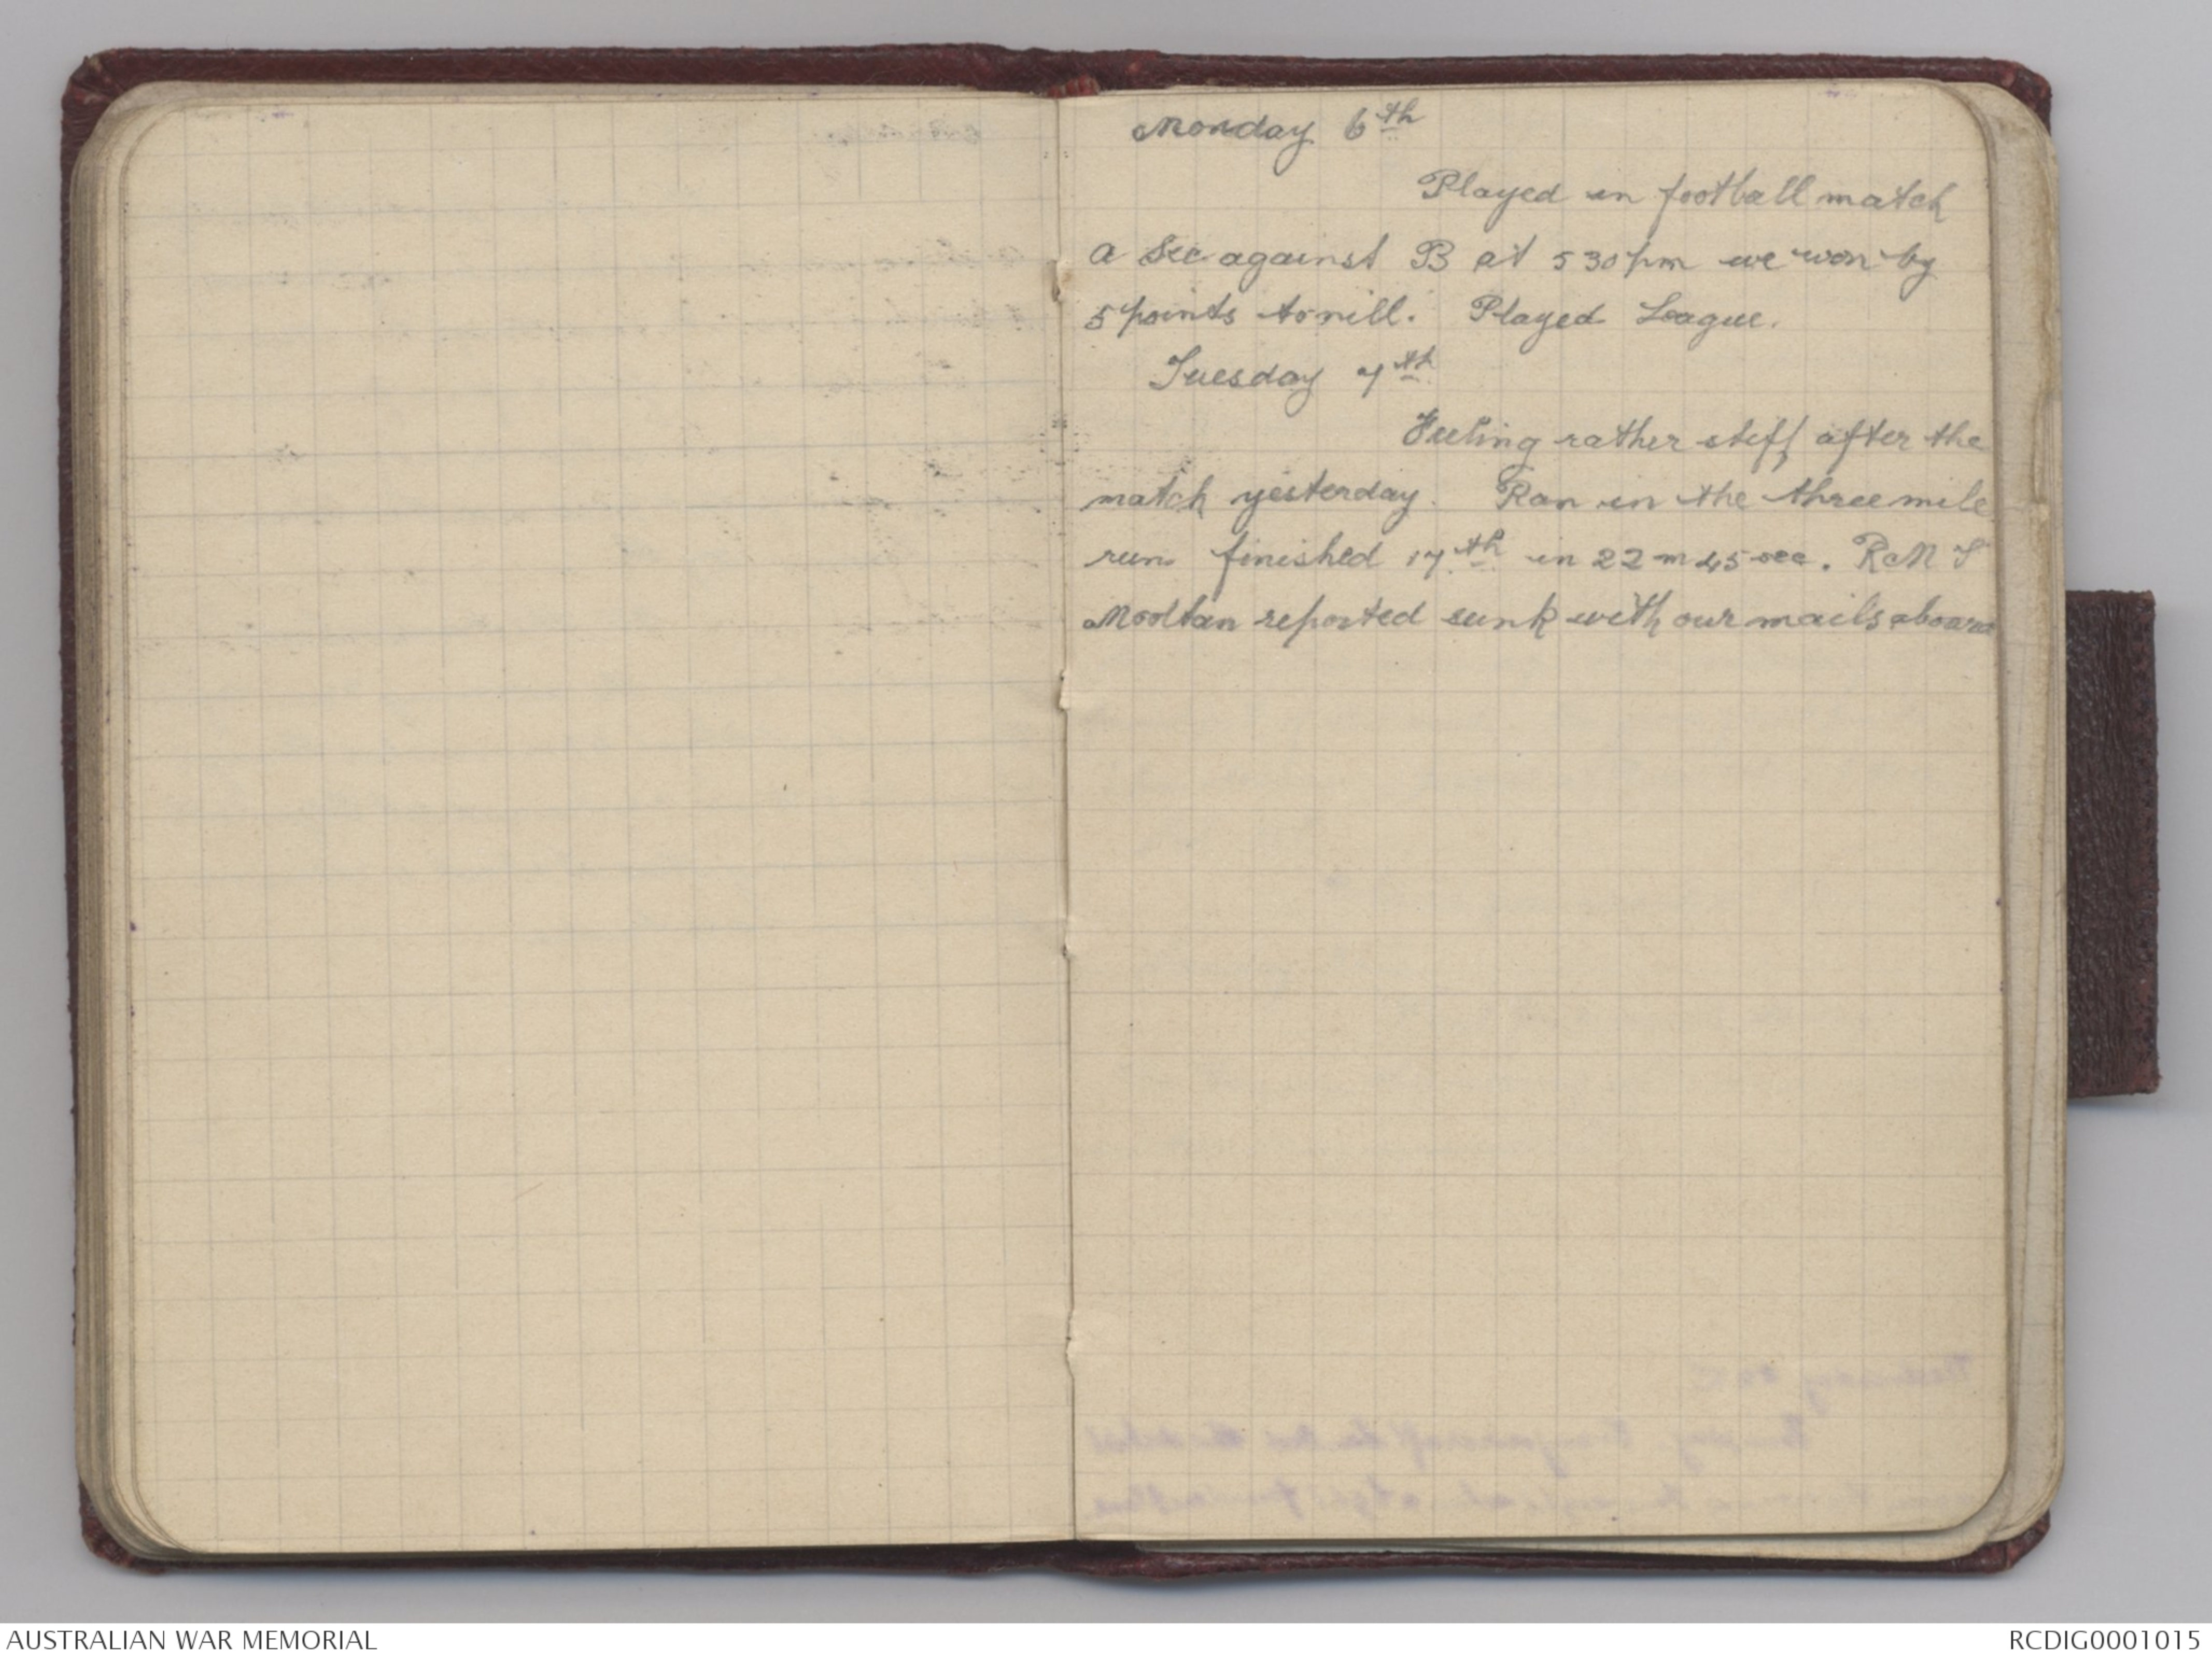 Monday 6th
Played in football match
A Sec against B at 5 30 pm we won by
5 points to nill. Played League.
Tuesday 7th
Feeling rather stiff after the
match yesterday. Ran in the three mile
run finished 17th in 22 m 45 sec. RMS
Mooltan reported sunk with our mails aboard
AUSTRALIAN WAR MEMORIAL
RCDIG0001015